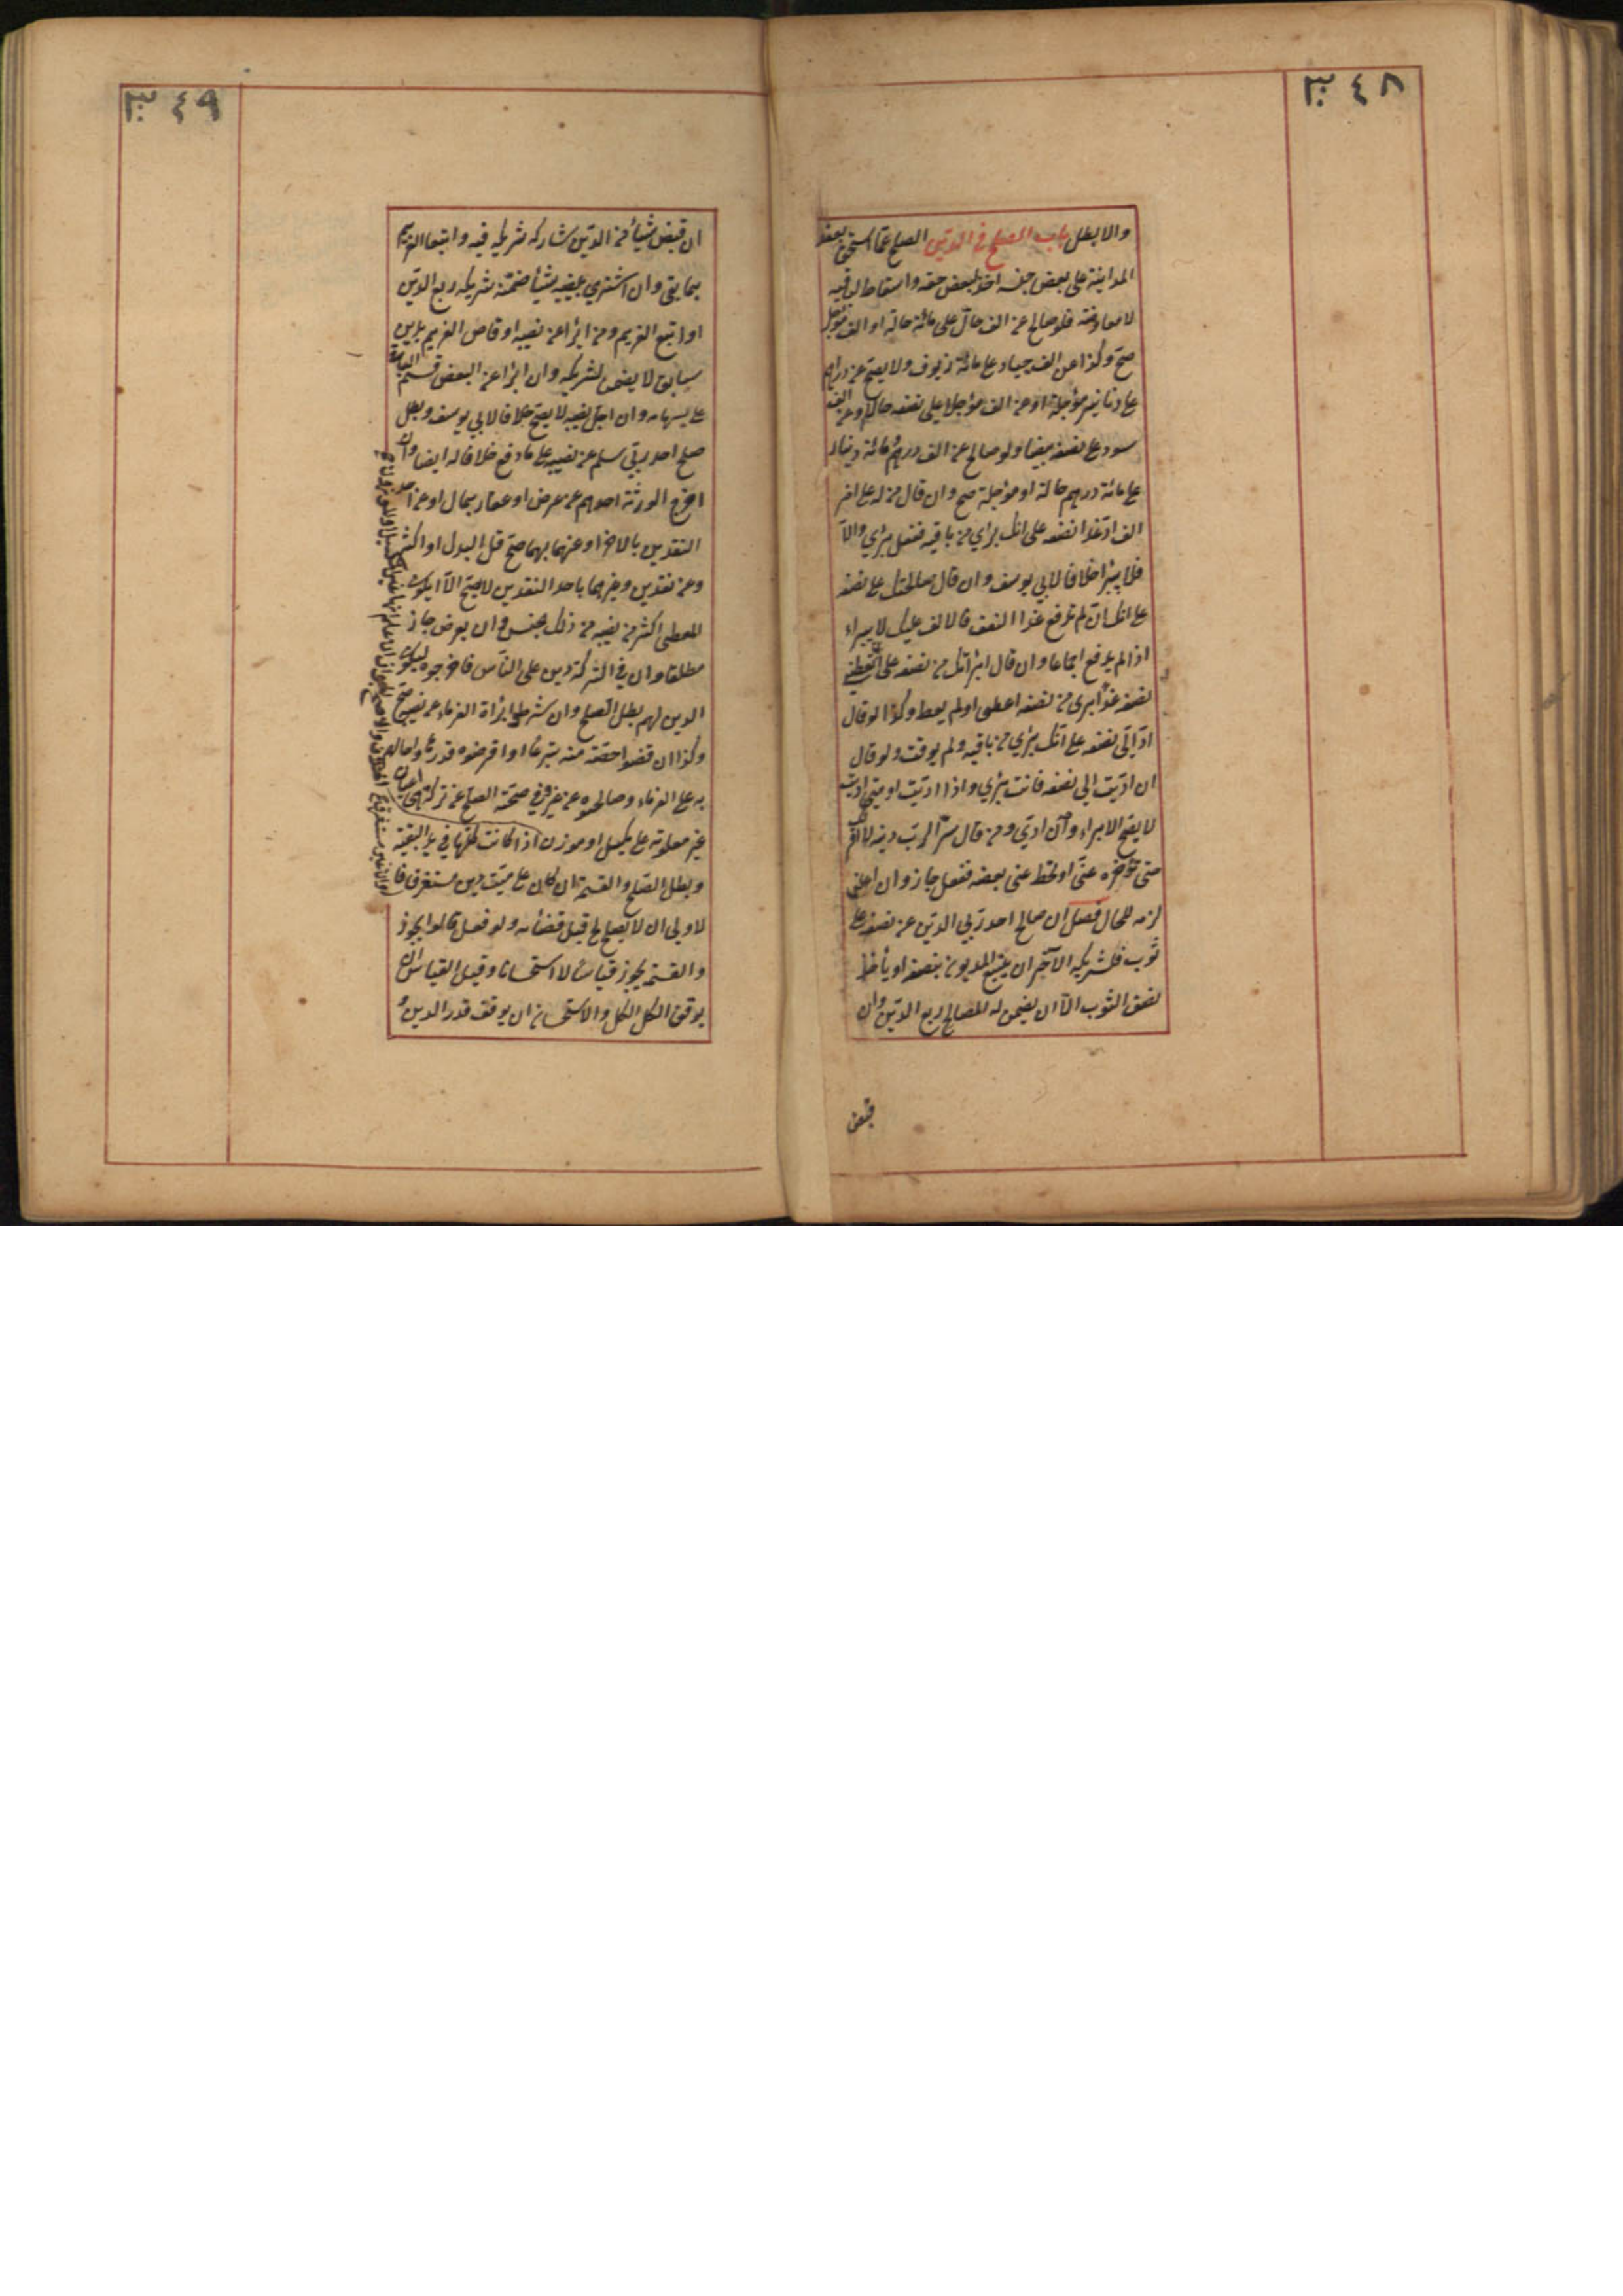 ٣٤٨
والا بطل باب الصلح في الدين الصلح عما استحق بعقد
المداينة على بعض جنسه اخذ لبعض حقه واسقاط لباقيه
لا معاوضة فلو صالح عن الف حال على مائة حالة او الف مؤجل
صح وكذا عن الف جياد على مائة زيوف ولا يصح عن دراهم
على دنانير مؤجلة او عن الف مؤجل على نصفه حالا وعن الف
سود على نصفه بيضا ولو صالح عن الف درهم ومائة دينار
على مائة درهم حالة او مؤجلة صح وان قال من له على اخر
الف اد غدا نصفه على انك برئ من باقيه ففعل برئ والا
فلا يبرأ خلافا لابي يوسف وان قال صالحتك على نصفه
على انك ان لم تدفع غدا النصف فالالف عليك لا يبراء
اذا لم يدفع اجماعا وان قال ابرأتك من نصفه على ان تعطيني
نصفه غدا برئ من نصفه اعطى او لم يعط وكذا لو قال
اد الي نصفه على انك برئ من باقيه ولم يوقت ولو قال
ان اديت الي نصفه فانت برئ واذا اديت او متى اديت
لا يصح الابراء وان ادى ومن قال سرا لرب دينه لا اقر لك
حتى تؤخره عني او تحط عني بعضه ففعل جاز وان اعلن
لزمه للحال فصل ان صالح احد ربي الدين عن نصفه على
ثوب فلشريكه الآخر ان يتبع المديون بنصفه او يأخذ
نصف الثوب الا ان يضمن له المصالح ربع الدين وان
قبض
٣٤٩
ان قبض شيأ من الدين شاركه شريكه فيه واتبعا الغريم
بما بقي وان اشترى بنصيبه شيأ ضمنه شريكه ربع الدين
او اتبع الغريم ومن ابرأ عن نصيبه او قاص الغريم بدين
سابق لا يضمن لشريكه وان ابرأ عن البعض قسم الباقي
على سهامه وان اجل نصيبه لا يصح خلافا لابي يوسف وبطل
صلح احد ربي سلم عن نصيبه على ما دفع خلافا له ايضا وان
اخرج الورثة احدهم عن عرض او عقار بمال او عن احد
النقدين بالاخر او عنهما بهما صح قل البدل او اكثر
وعن نقدين وغيرهما باحد النقدين لا يصح الا ان يكون
المعطى اكثر من نصيبه من ذلك الجنس وان بعرض جاز
مطلقا وان في التركة دين على الناس فاخرجوه ليكون
الدين لهم بطل الصلح وان شرطوا براة الغرماء من نصيبه صح
وكذا ان قضوا حصته منه تبرعا او اقرضوه قدرها واحالهم
به على الغرماء وصالحوه عن غيره وفي صحة الصلح عن تركة هي اعيان
غير معلومة على مكيل او موزون اذا كانت كلها في يد البقية
وبطل الصلح والقسمة ان كان على ميت دين مستغرق فا
لاولى ان لا يصالح قبل قضائه ولو فعل قالوا يجوز
والقسمة يجوز قياسا لا استحسانا وقيل القياس ان
يوقف الكل والاستحسان ان يوقف قدر الدين و